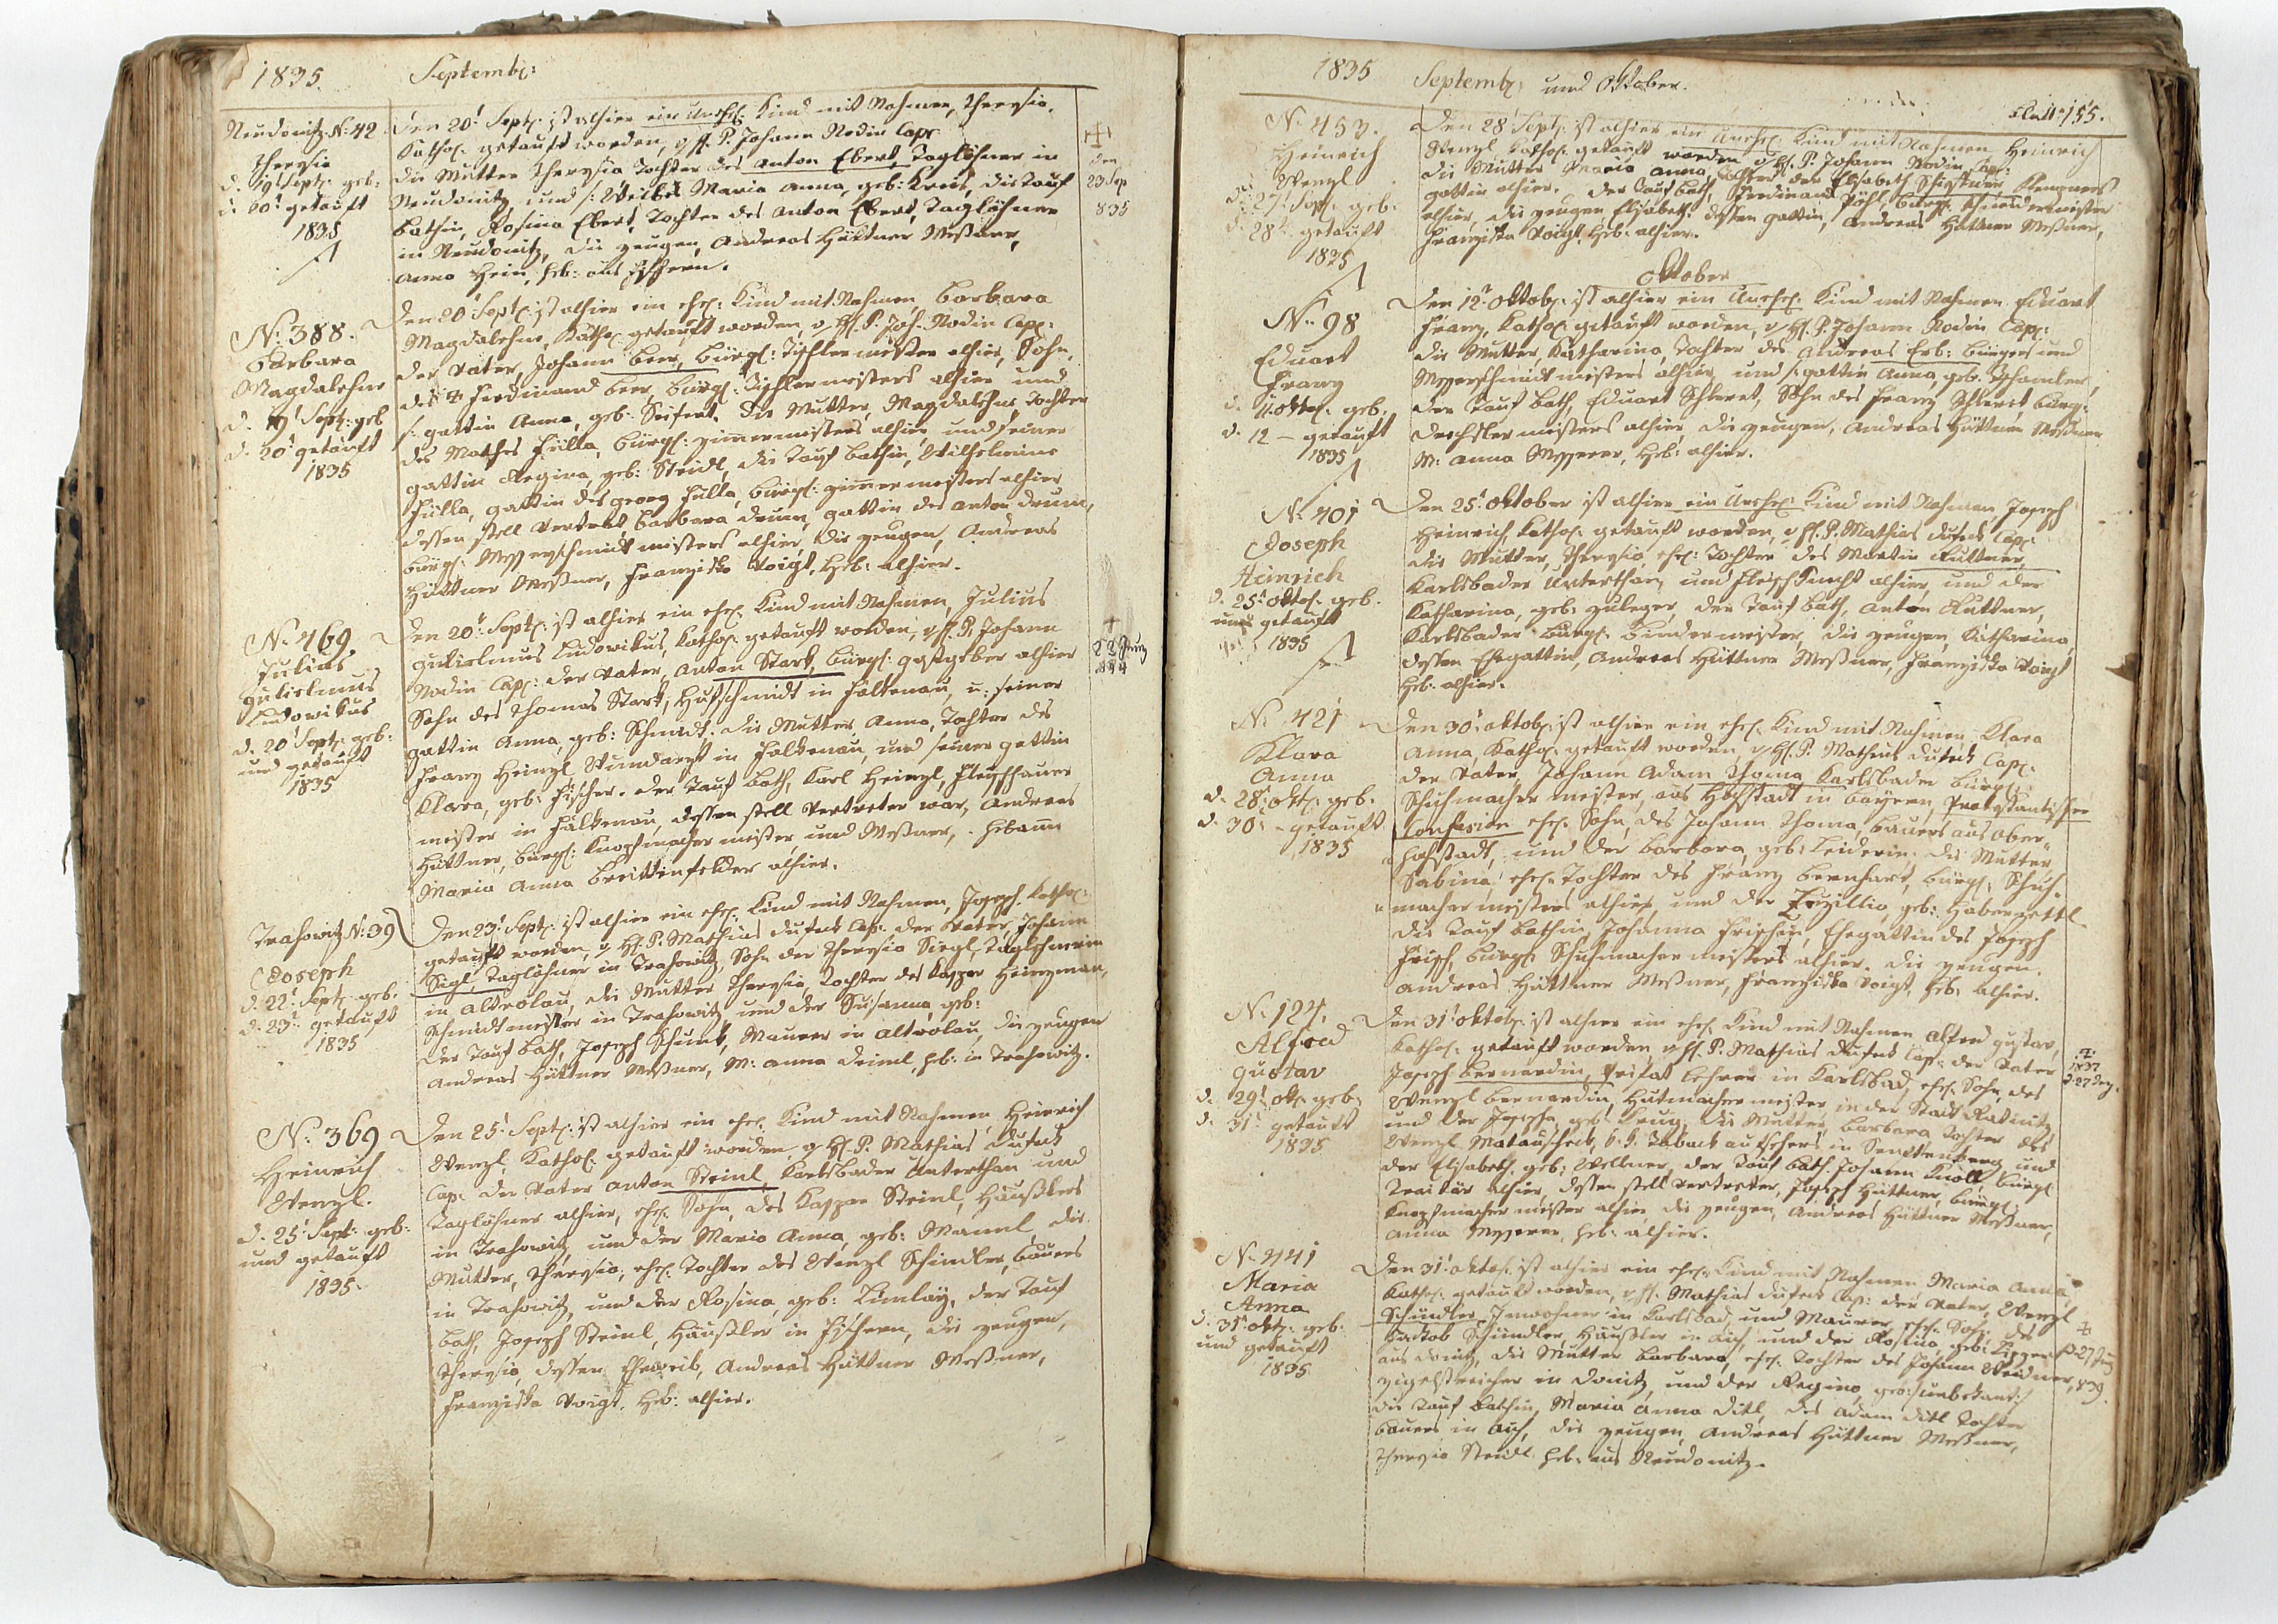 1835. Septembr:
Neudonitz N: 42
Theresia
d. 19t Sept. geb:
d. 20t getauft
1835
Den 20t Sept: ist alhier ein Unehel: Kind mit Nahmen, Theresia,
Kathol: getauft worden, v H. P. Johann Nodin Cap:
die Mutter Theresia Tochter des Anton Ebert, Taglöhner in
Neudonitz, und s: Weibes Maria Anna, geb: Kraus, die Tauf
bathin, Rosina Ebert, Tochter des Anton Ebert, Taglöhner
in Neudonitz, die Zeugen, Andreas Hüttner Meßner,
Anna Hein, Heb: aus Fischern.
den
23 Sep
835
N: 388.
Barbara
Magdalehne
d. 19t Sept: geb
d. 20t getauft
1835
Den 20t Sept: ist alhier ein ehel: Kind mit Nahmen, Barbara
Magdalehne, Kathol: getauft worden, v H. P. Joh. Nodin Cap:
der Vater, Johann Beer, Bürgl: Tischlermeister alhier, Sohn,
des Ferdinand Beer, bürgl: Tischlermeisters alhier und
s: gattin Anna, geb: Seifert. Die Mutter, Magdalehne Tochter
des Mathes Fülla, bürgl: Zimmermeisters alhier, und seiner
gattin Regina, geb: Steidl, die Tauf bathin, Wilhelmine
Fülla, gattin des Georg Fülla, bürgl: Zimmermeisters alhier
dessen stell Vertrat Barbara Drum, gattin des Anton Drum,
bürgl: Messerschmidtmeisters alhier, die Zeugen, Andreas
Hüttner Meßner, Franziska Voigt, Heb: alhier.
N: 469
Julius
Gulielmus
Ludowikus
d. 20t Sept: geb:
und getauft
1835
Den 20t Sept: ist alhier ein ehel: Kind mit Nahmen, Julius
Gulielmus Ludowikus, Kathol: getauft worden, v H. P. Johann
Nodin Cap: der Vater, Anton Stark, bürgl: gastgeber alhier
Sohn des Thomas Stark, Hufschmidt in Falkenau, u: seiner
gattin Anna, geb: Schmidt: die Mutter, Anna, Tochter des
Franz Heinzl Wundarzt in Falkenau, und seiner gattin
Klara, geb: Fischer. Der Tauf bath, Karl Heinzl, Fleischhauer
meister in Falkenau, dessen stell Vertreter war, Andreas
Hüttner, bürgl: Knopfmacher meister, und Meßner, Hebamm
Maria Anna Breittenfelder alhier.
Trahowitz N: 39
Joseph
d. 22t Sept. geb.
d. 23t getauft
1835
Den 23t Sept: ist alhier ein ehel: Kind mit Nahmen, Joseph, Kathol:
getauft worden, v H. P. Mathias Dutsch Cap: der Vater, Johann
Sigl, Taglöhner in Trahowitz, Sohn der Theresia Siegl, Taglöhnerin
in Altrolau, die Mutter Theresia, Tochter des Kaspar Heinzman,
Schmidtmeister in Trahowitz und der Susanna, geb:
Der Tauf bath, Joseph Schunk, Maurer in Altrolau, die Zeugen
Andreas Hüttner Meßner, M: Anna Deiml, Heb: in Trahowitz.
N: 369
Heinrich
Wenzl.
d. 25t Sept: geb:
und getauft
1835.
Den 25t Sept: ist alhier ein ehel: Kind mit Nahmen, Heinrich
Wenzl, Kathol: getauft worden, v H. P. Mathias Dutsch
Cap: der Vater Anton Steinl, Karlsbader Unterthan und
Taglöhner alhier, ehel: Sohn, des Kaspar Steinl, Häußlers
in Trahowitz, und der Maria Anna, geb: Mannl, die
Mutter, Theresia, ehel: Tochter des Wenzl Schindler, bauers
in Trahowitz, und der Rosina, geb: Limlay, der Tauf
bath, Joseph Steinl, Häußler in Fischern, die Zeugen,
Theresia, dessen Eheweib, Andreas Hüttner Meßner,
Franziska Voigt, Heb: alhier.
1835 Septembr: und Oktober.
Blatt 155.
N: 453.
Heinrich
Wenzl
d. 27t Sept. geb:
d. 28t getauft
1835
Den 28t Sept: ist alhier ein Unehel: Kind mit Nahmen Heinrich
Wenzl, Kathol: getauft worden, v H. P. Johann Nodin Cap:
die Mutter Maria Anna, Tochter der Elisabeth
gattin alhier. Der Tauf bath, Ferdinand Pöhl, bürgl: Schneidermeister
alhier, die Zeugen, Elisabeth dessen gattin, Andreas Hüttner Meßner,
Franziska Voigt, Heb: alhier.
Oktober
N: 98
Eduart
Franz
d. 11. Oktob. geb.
d. 12 – getauft
1835
Den 12t Oktob: ist alhier ein Unehel: Kind mit Nahmen Eduart
Franz, Kathol: getauft worden, v H. P. Johann Nodin Cap:
die Mutter, Katharina, Tochter des Andreas Erb: bürgers und
Messerschmidtmeisters alhier, und s: gattin Anna, geb. Tschamler,
der Tauf bath, Eduart Schleret, Sohn des Franz Schleret bürgl:
drechslermeisters alhier, die Zeugen, Andreas Hüttner Meßner
M: Anna Messerer, Heb: alhier.
N: 401
Joseph
Heinrich
d. 25t Oktob. geb.
und getauft
1835
Den 25t Oktober ist alhier ein Unehel: Kind mit Nahmen, Joseph
Heinrich, Kathol: getauft worden, v H. P. Mathias Dutsch Cap:
die Mutter, Theresia, ehel: Tochter des Martin Ruttner,
Karlsbader Unterthan, und Fleischknecht alhier, und der
Katharina, geb: Zuleger, der Tauf bath, Anton Ruttner,
Karlsbader Bürgl: Bindermeister, die Zeugen, Katharina,
dessen Ehegattin, Andreas Hüttner Meßner, Franziska Voigt
Heb: alhier.
N: 421
Klara
Anna
d. 28t Okt: geb.
d. 30t – getauft
1835
Den 30t Oktob: ist alhier ein ehel: Kind mit Nahmen, Klara
Anna, Kathol: getauft worden, v H. P. Mathias Dutsch Cap:
der Vater, Johann Adam Thoma, Karlsbader bürgl:
Schuhmacher meister, aus Hochstadt in Bayern, Protestantischer
Confesion ehel: Sohn, des Johann Thoma, bauers aus Ober-
hochstadt, und der Barbara, geb: Leiderin, die Mutter,
Sabina, ehel: Tochter des Franz Bernhart, bürgl: Schuh-
macher meisters alhier, und der Zezillia, geb: Haberzettl
die Tauf bathin, Johanna Frisch, Ehegattin des Joseph
Frisch, bürgl: Schuhmachermeisters alhier. die Zeugen,
Andreas Hüttner Meßner, Franziska Voigt, Heb: alhier.
N: 124,
Alfred
Gustav
d. 29t okt: geb:
d. 31t getauft
1835
Den 31t Oktob: ist alhier ein ehel: Kind mit Nahmen Alfred Gustav,
Kathol: getauft worden, v H. P. Mathias Dutsch Cap: der Vater
Joseph Bernardin, Prifat Lehrer in Karlsbad, ehel: Sohn, des
Wenzl Bernardin, Hutmachermeister, in der Stadt Rakonitz,
und der Josepha, geb: Krug, die Mutter, Barbara Tochter des
Wenzl Matauscheck, k. k. Taback aufsehers in Senftenberg und
der Elisabeth, geb: Wellner, der Tauf bath, Johann Knoll, bürgl
Traiteur alhier, dessen stell Vertreter, Joseph Hüttner, bürgl:
Knopfmacher meister alhier, die Zeugen, Andreas Hüttner Meßner,
Anna Messerer, Heb: alhier.
1837
d. 27 Dez.
N: 441
Maria
Anna
d. 31t Okt: geb:
und getauft
1835
Den 31t Oktob: ist alhier ein ehel: Kind mit Nahmen, Maria Anna,
Kathol: getauft worden, v H. Mathias Dutsch Cap: der Vater, Wenzl
Schindler, Innwohner in Karlsbad, und Maurer, ehel: Sohn, des
Jackob Schindler, Häußler in Aich, und der Rosina, geb: Lipper
aus Donitz, die Mutter Barbara, ehel: Tochter des Johann Weidner,
Zigelstreicher in Donitz, und der Regina, geb: unbekant:
die Tauf bathin, Maria Anna Ditl, des Adam Ditl Tochter
bauers in Aich, die Zeugen, Andreas Hüttner Meßner,
Theresia Steidl Heb: aus Neudonitz.